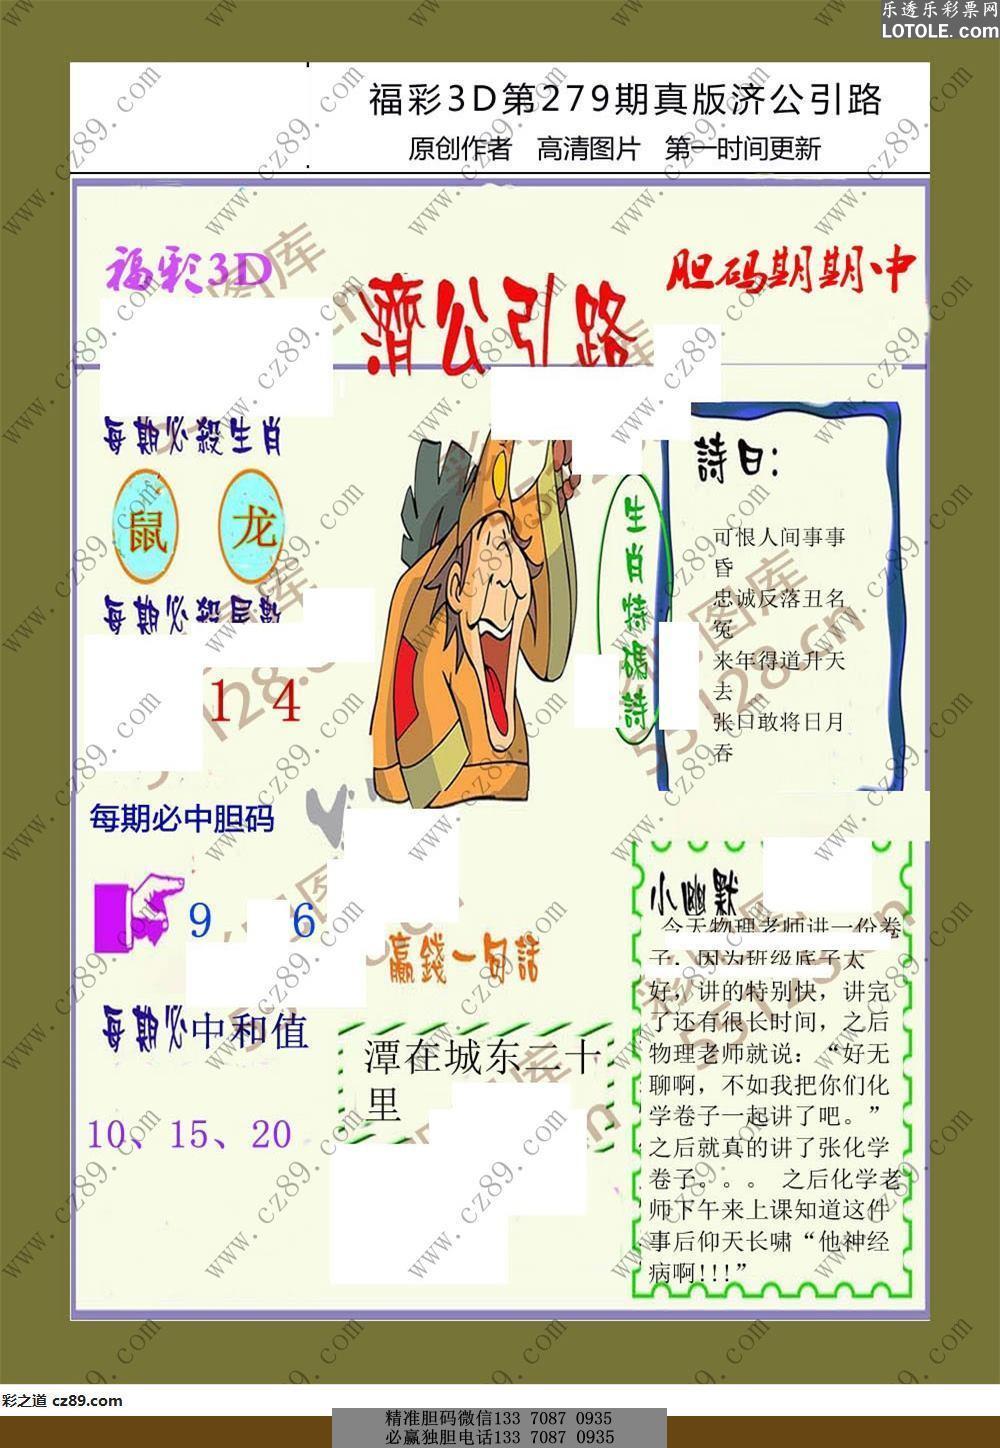 乐透乐彩票网
LOTOLE.com
福彩3D第279期真版济公引路
原创作者 高清图片 第一时间更新
福彩3D
濟公引路
胆码期期中
每期必殺生肖
鼠 龙
每期必殺尾數
1 4
每期必中胆码
9 6
每期必中和值
10、15、20
生肖特碼詩
詩曰：
可恨人间事事
昏
忠诚反落丑名
冤
来年得道升天
去
张口敢将日月
吞
赢錢一句話
潭在城东二十
里
小幽默
今天物理老师讲一份卷
子，因为班级底子太
好，讲的特别快，讲完
了还有很长时间，之后
物理老师就说：“好无
聊啊，不如我把你们化
学卷子一起讲了吧。”
之后就真的讲了张化学
卷子。。。 之后化学老
师下午来上课知道这件
事后仰天长啸“他神经
病啊!!!”
www.cz89.com
55128.cn
彩之道 cz89.com
精准胆码微信133 7087 0935
必赢独胆电话133 7087 0935